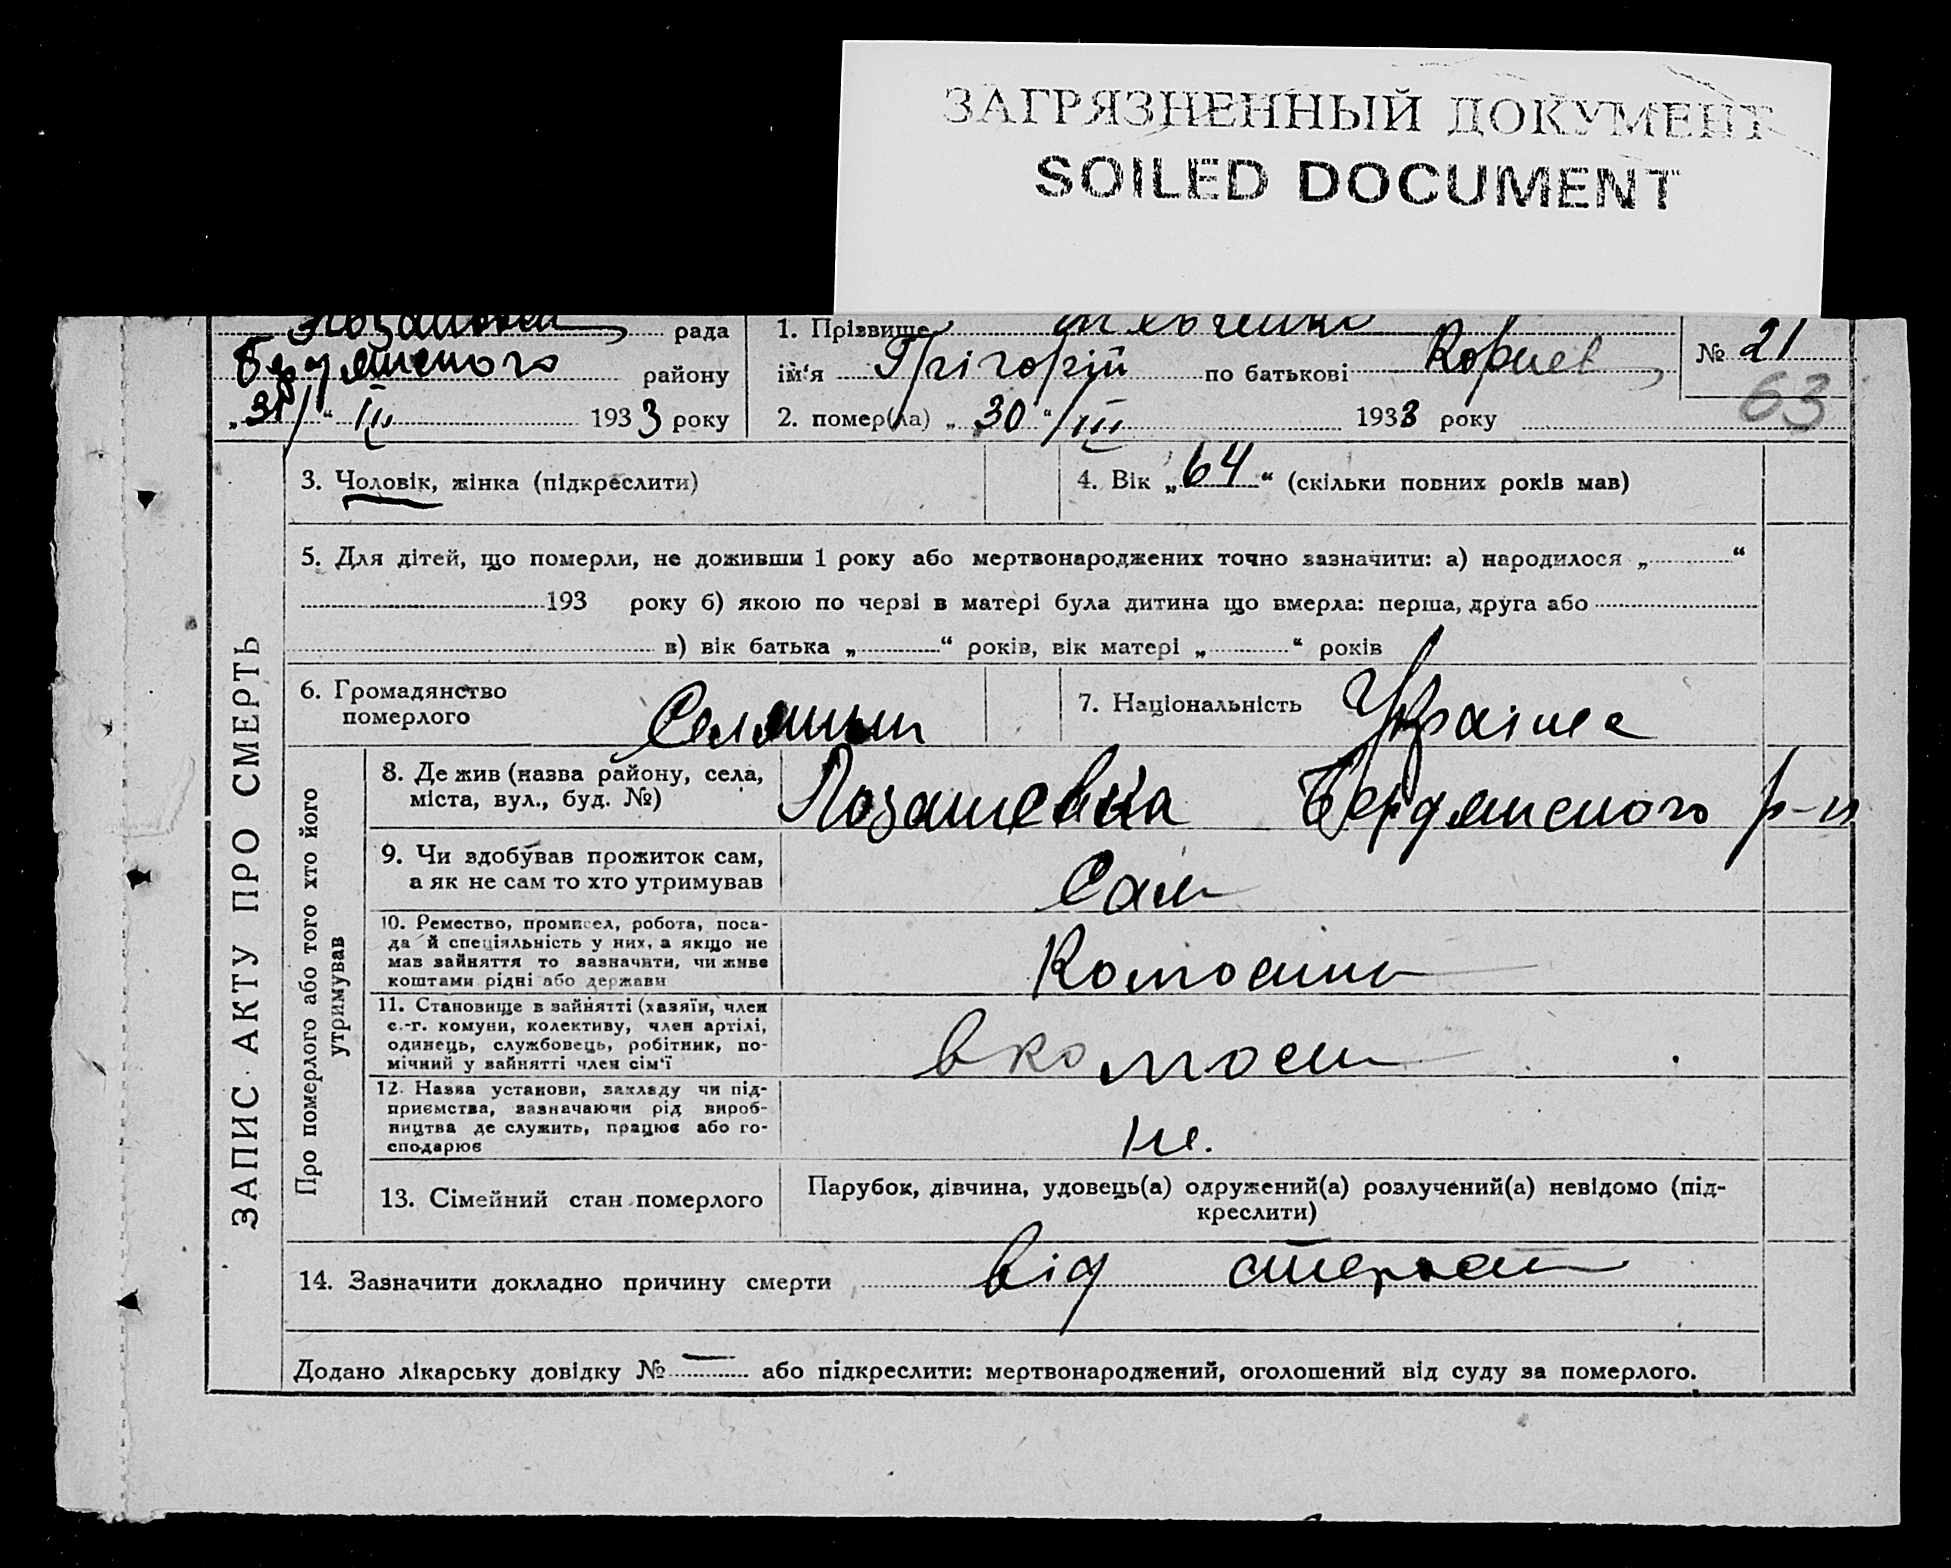 ЗАГРЯЗНЕННЫЙ ДОКУМЕНТ
SOILED DOCUMENT
рада
1. Прізвище
№ 21
Бердянского району
ім'я Грігорій по батькові Корнев
63
„31“ III 1933 року
2. помер(ла) „30“ III 1933 року
ЗАПИС АКТУ ПРО СМЕРТЬ
3. Чоловік, жінка (підкреслити)
4. Вік „64“ (скільки повних років мав)
5. Для дітей, що померли, не доживши 1 року або мертвонароджених точно зазначити: а) народилося „ “
193 року б) якою по черзі в матері була дитина що вмерла: перша, друга або
в) вік батька „ “ років, вік матері „ “ років
6. Громадянство
померлого
Селянин
7. Національність Украінец
Про померлого або того хто його
утримував
8. Де жив (назва району, села,
міста, вул., буд. №)
Бердянского р-н
9. Чи здобував прожиток сам,
а як не сам то хто утримував
Сам
10. Ремество, промисел, робота, поса-
да й спеціяльність у них, а якщо не
мав зайняття то зазначити, чи живе
коштами рідні або держави
11. Становище в зайнятті (хазяїн, член
с.-г. комуни, колективу, член артілі,
одинець, службовець, робітник, по-
мічний у зайнятті член сім'ї
12. Назва установи, закладу чи під-
приємства, зазначаючи рід вироб-
ництва де служить, працює або го-
сподарює
не.
13. Сімейний стан померлого
Парубок, дівчина, удовець(а) одружений(а) розлучений(а) невідомо (під-
креслити)
14. Зазначити докладно причину смерти від
Додано лікарську довідку № — або підкреслити: мертвонароджений, оголошений від суду за померлого.